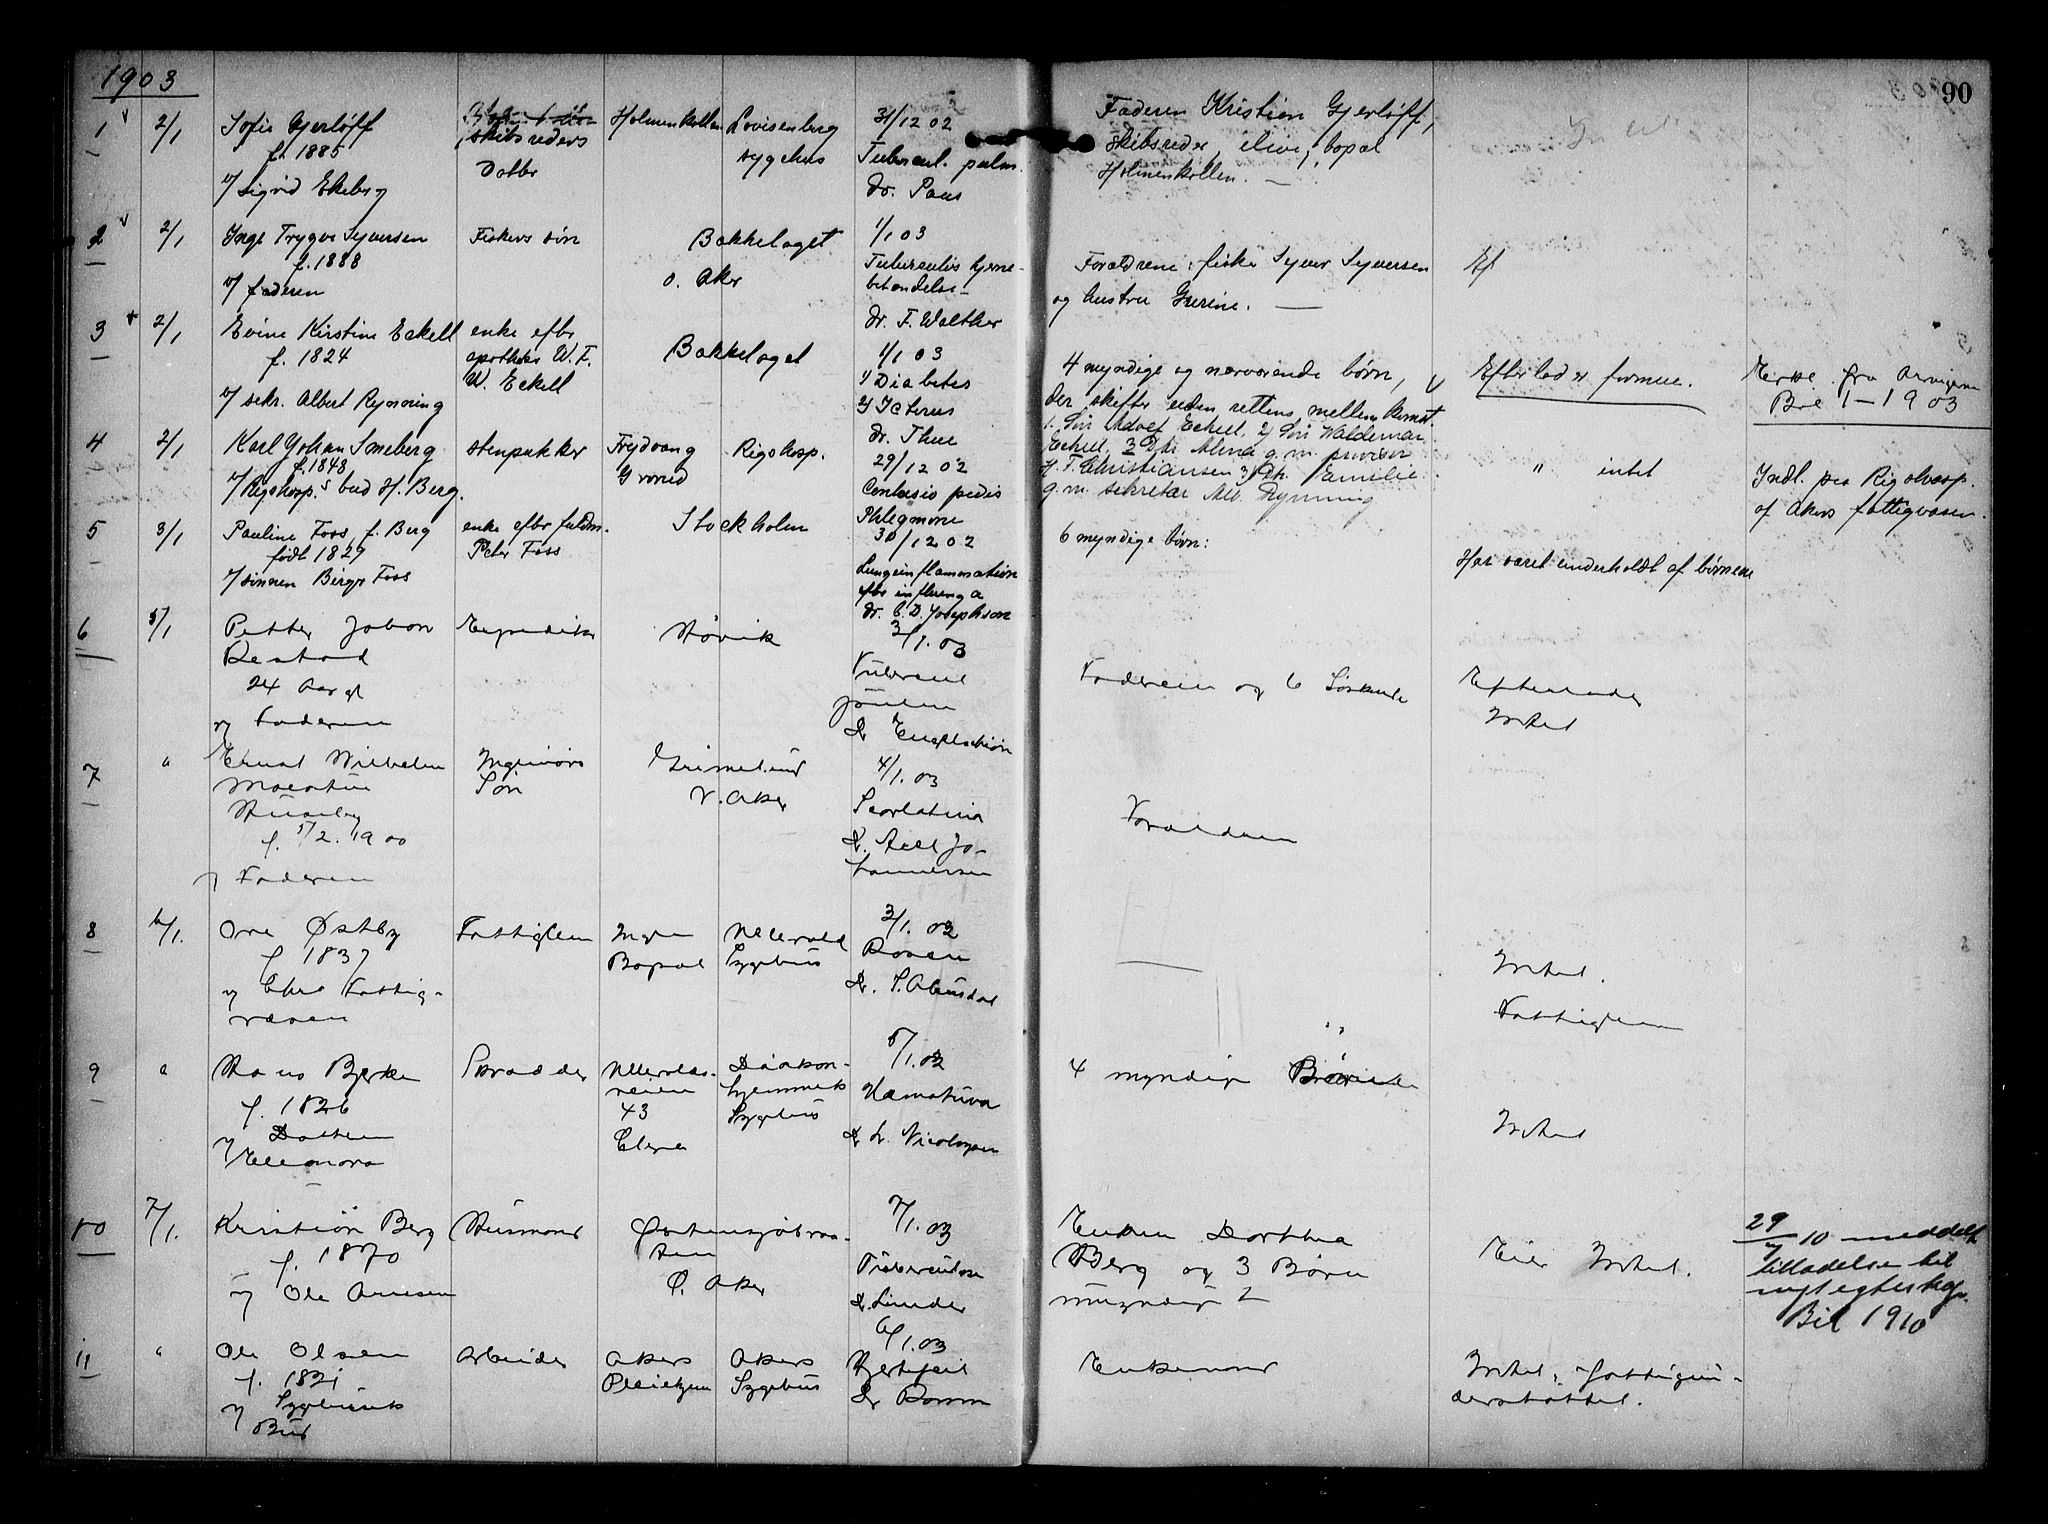 1903
90
1
2/1
Sofie Gjerløff
f. 1885
v/ Sigrid Ekeberg
skibsreders
Datter
Holmenkollen
Lovisenberg
sygehus
31/12 02
Tubercul. pulm.
dr. Paus
Faderen Kristian Gjerløff,
skibsreder, ilive, bopæl
Holmenkollen. —
2
2/1
Inge Trygve Syversen
f. 1888
v/ faderen
Fiskers søn
Bækkelaget
ø. Aker
1/1 03
Tuberculøs hjerne-
betændelse
dr. F. Walther
Forældrene: fisker Syver Syversen
og hustru Gurine. —
Ef
3
2/1
Kirstine Eckell
f. 1824
v/ sekr. Albert Rynning
enke efter
apotheker W. F.
W. Eckell
Bækkelaget
1/1 03
1/ Diabetes
2/ Icterus
dr. Thue
4 myndige og nærværende børn,
der skifter uden rettens mellemkomst.
1. Søn Adolf Eckell, 2/ Søn Waldemar
Eckell, 3 Dtr. Alma g.m. provisor
H. F. Christiansen 3/ Dtr. Emilie
g.m. sekretær Alb. Rynning
Efterlader formue.
fra Arvingerne
Bil 1 – 1903
4
2/1
Karl Johan Smeberg
f. 1848
v/ Rigshosp.s bud H. Berg.
stenpukker
Frydvang
Grorud
Rigshosp.
29/12 02
Contusio pedis
Phlegmone
" intet
Indl. paa Rigshosp.
af Akers fattigvæsen.
5
3/1
Pauline Foss, f. Berg
født 1827
v/ sønnen Birger Foss
enke efter fuldm.
Peter Foss
Stockholm
30/12 02
Lungeinflammation
efter influenza
dr. C. D. Josephson
6 myndige børn:
Har været underholdt af børnene
6
5/1
Petter Johan
24 Aar gl
v/ Faderen
Høvik
3/1. 03
dr Engelschiøn
Faderen og 6 Søskende
Efterlader
Intet
7
"
Ernst Wilhelm
f. 5/2. 1900
v/ Faderen
Ingeniørs
Søn
Grimelund
V. Aker
4/1. 03
Scarlatina
dr. Axel Jo-
hannessen
Forældrene
8
6/1.
Ove Østby
f 1837
v/ Chra Fattig-
væsen
Fattiglem
Ingen
Bopæl
Ullevaal
Sygehus
3/1. 03
dr. S. Abusdal
Intet.
Fattiglem
9
"
Hans Bjerke
f. 1826
v/ Datteren
Eleonora
Skrædder
Ullevaals-
veien
43
Chra
Diakon-
hjemmets
Sygehus
5/1. 03
Hæmaturia
dr L. Nicolaysen
4 myndige Børn
Intet
10
7/1.
Kristian Berg
f. 1870
v/ Ole Arnesen
Husmand
Østensjøbraa-
ten
Ø. Aker
7/1. 03
Tuberculose
dr. Linder
Enken Dorthea
Berg og 3 Børn
umyndige
Eier Intet.
29/10 meddelt
tilladelse til
nyt egteskap.
Bil 1910
11
"
Ole Olsen
f. 1821
v/ Sygehusets
Bud
Arbeider
Akers
Pleiehjem
Akers
Sygehus
6/1. 03
Hjertefeil
Enkemand
Intet, fattigun-
derstøttet.